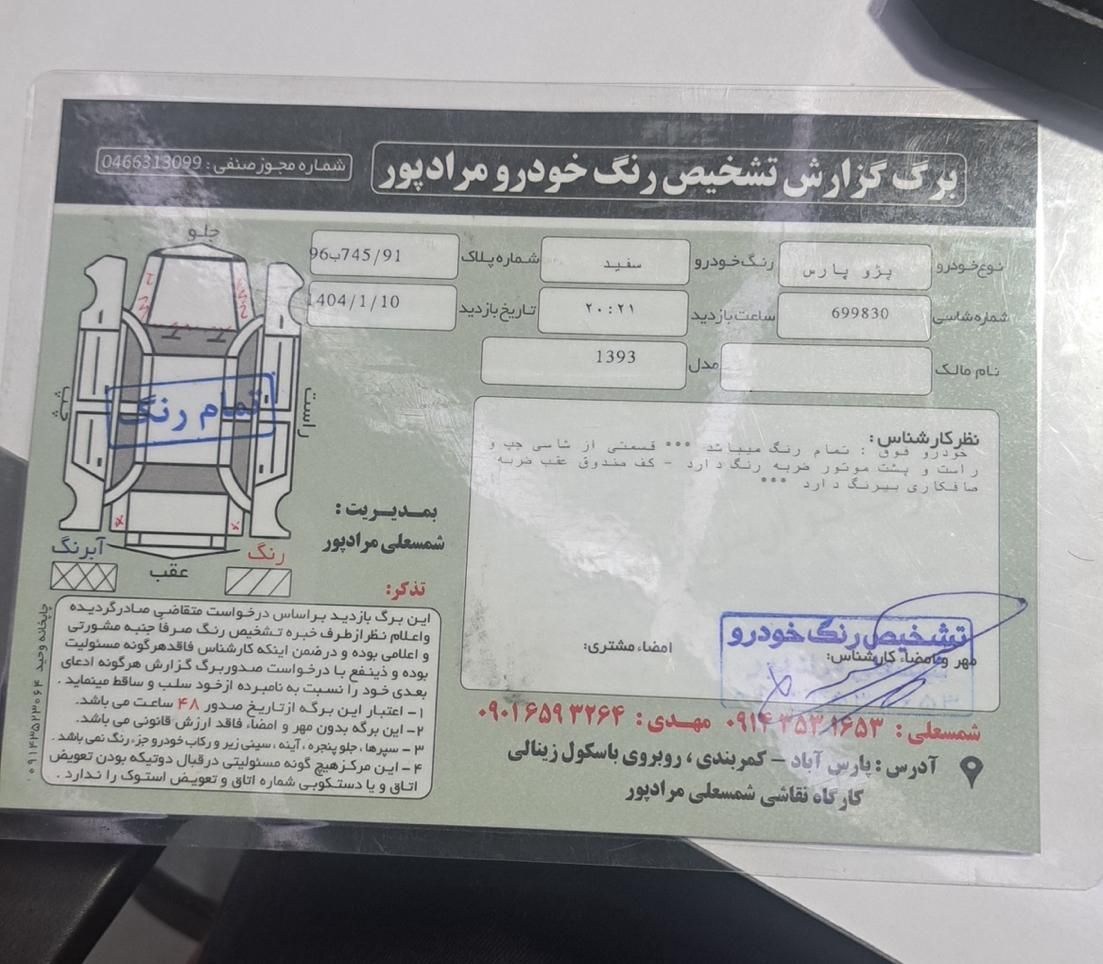 برگ گزارش تشخیص رنگ خودرو مرادپور
شماره مجوز صنفی : 0466313099
نوع خودرو پژو پارس رنگ خودرو سفید شماره پلاک 96ب745/91
شماره شاسی 699830 ساعت بازدید ۲۰:۲۱ تاریخ بازدید 1404/1/10
نام مالک مدل 1393
نظر کارشناس:
خودرو فوق : تمام رنگ میباشد *** قسمتی از شاسی چپ و
راست و پشت موتور ضربه رنگ دارد - کف صندوق عقب ضربه
صافکاری بیرنگ دارد ***
امضاء مشتری:
مهر و امضاء کارشناس:
تشخیص رنگ خودرو
جلو
راست
چپ
تمام رنگ
عقب
رنگ
آبرنگ
بمدیریت :
شمسعلی مرادپور
تذکر:
این برگ بازدید براساس درخواست متقاضی صادرگردیده
واعلام نظر ازطرف خبره تشخیص رنگ صرفا جنبه مشورتی
و اعلامی بوده و درضمن اینکه کارشناس فاقدهرگونه مسئولیت
بوده و ذینفع با درخواست صدوربرگ گزارش هرگونه ادعای
بعدی خود را نسبت به نامبرده ازخود سلب و ساقط مینماید .
۱- اعتبار این برگه ازتاریخ صدور ۴۸ ساعت می باشد.
۲- این برگه بدون مهر و امضاء، فاقد ارزش قانونی می باشد.
۳- سپرها، جلو پنجره ، آینه ، سینی زیر و رکاب خودرو جزء رنگ نمی باشد .
۴- این مرکزهیچ گونه مسئولیتی درقبال دوتیکه بودن تعویض
اتاق و یا دستکوبی شماره اتاق و تعویض استوک را ندارد .
چاپخانه وحید ۰۹۱۴۳۵۲۳۰۶۴
شمسعلی : ۰۹۱۴ ۳۵۳ ۱۶۵۳ مهدی : ۰۹۰۱۶۵۹۳۲۶۴
آدرس : پارس آباد - کمربندی ، روبروی باسکول زینالی
کارگاه نقاشی شمسعلی مرادپور